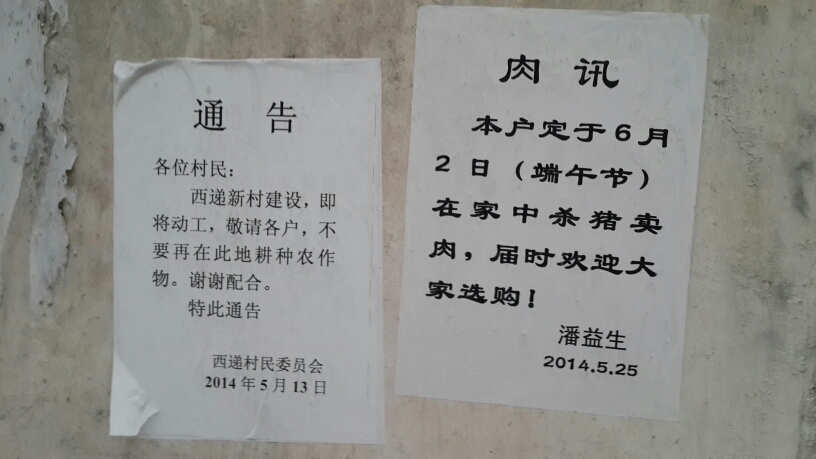 通 告
各位村民:
西递新村建设,即
将动工,敬请各户,不
要再在此地耕种农作
物。谢谢配合。
特此通告
西递村民委员会
2014 年 5 月 13 日
肉 讯
本户定于6月
2日(端午节)
在家中杀猪卖
肉,届时欢迎大
家选购!
潘益生
2014.5.25